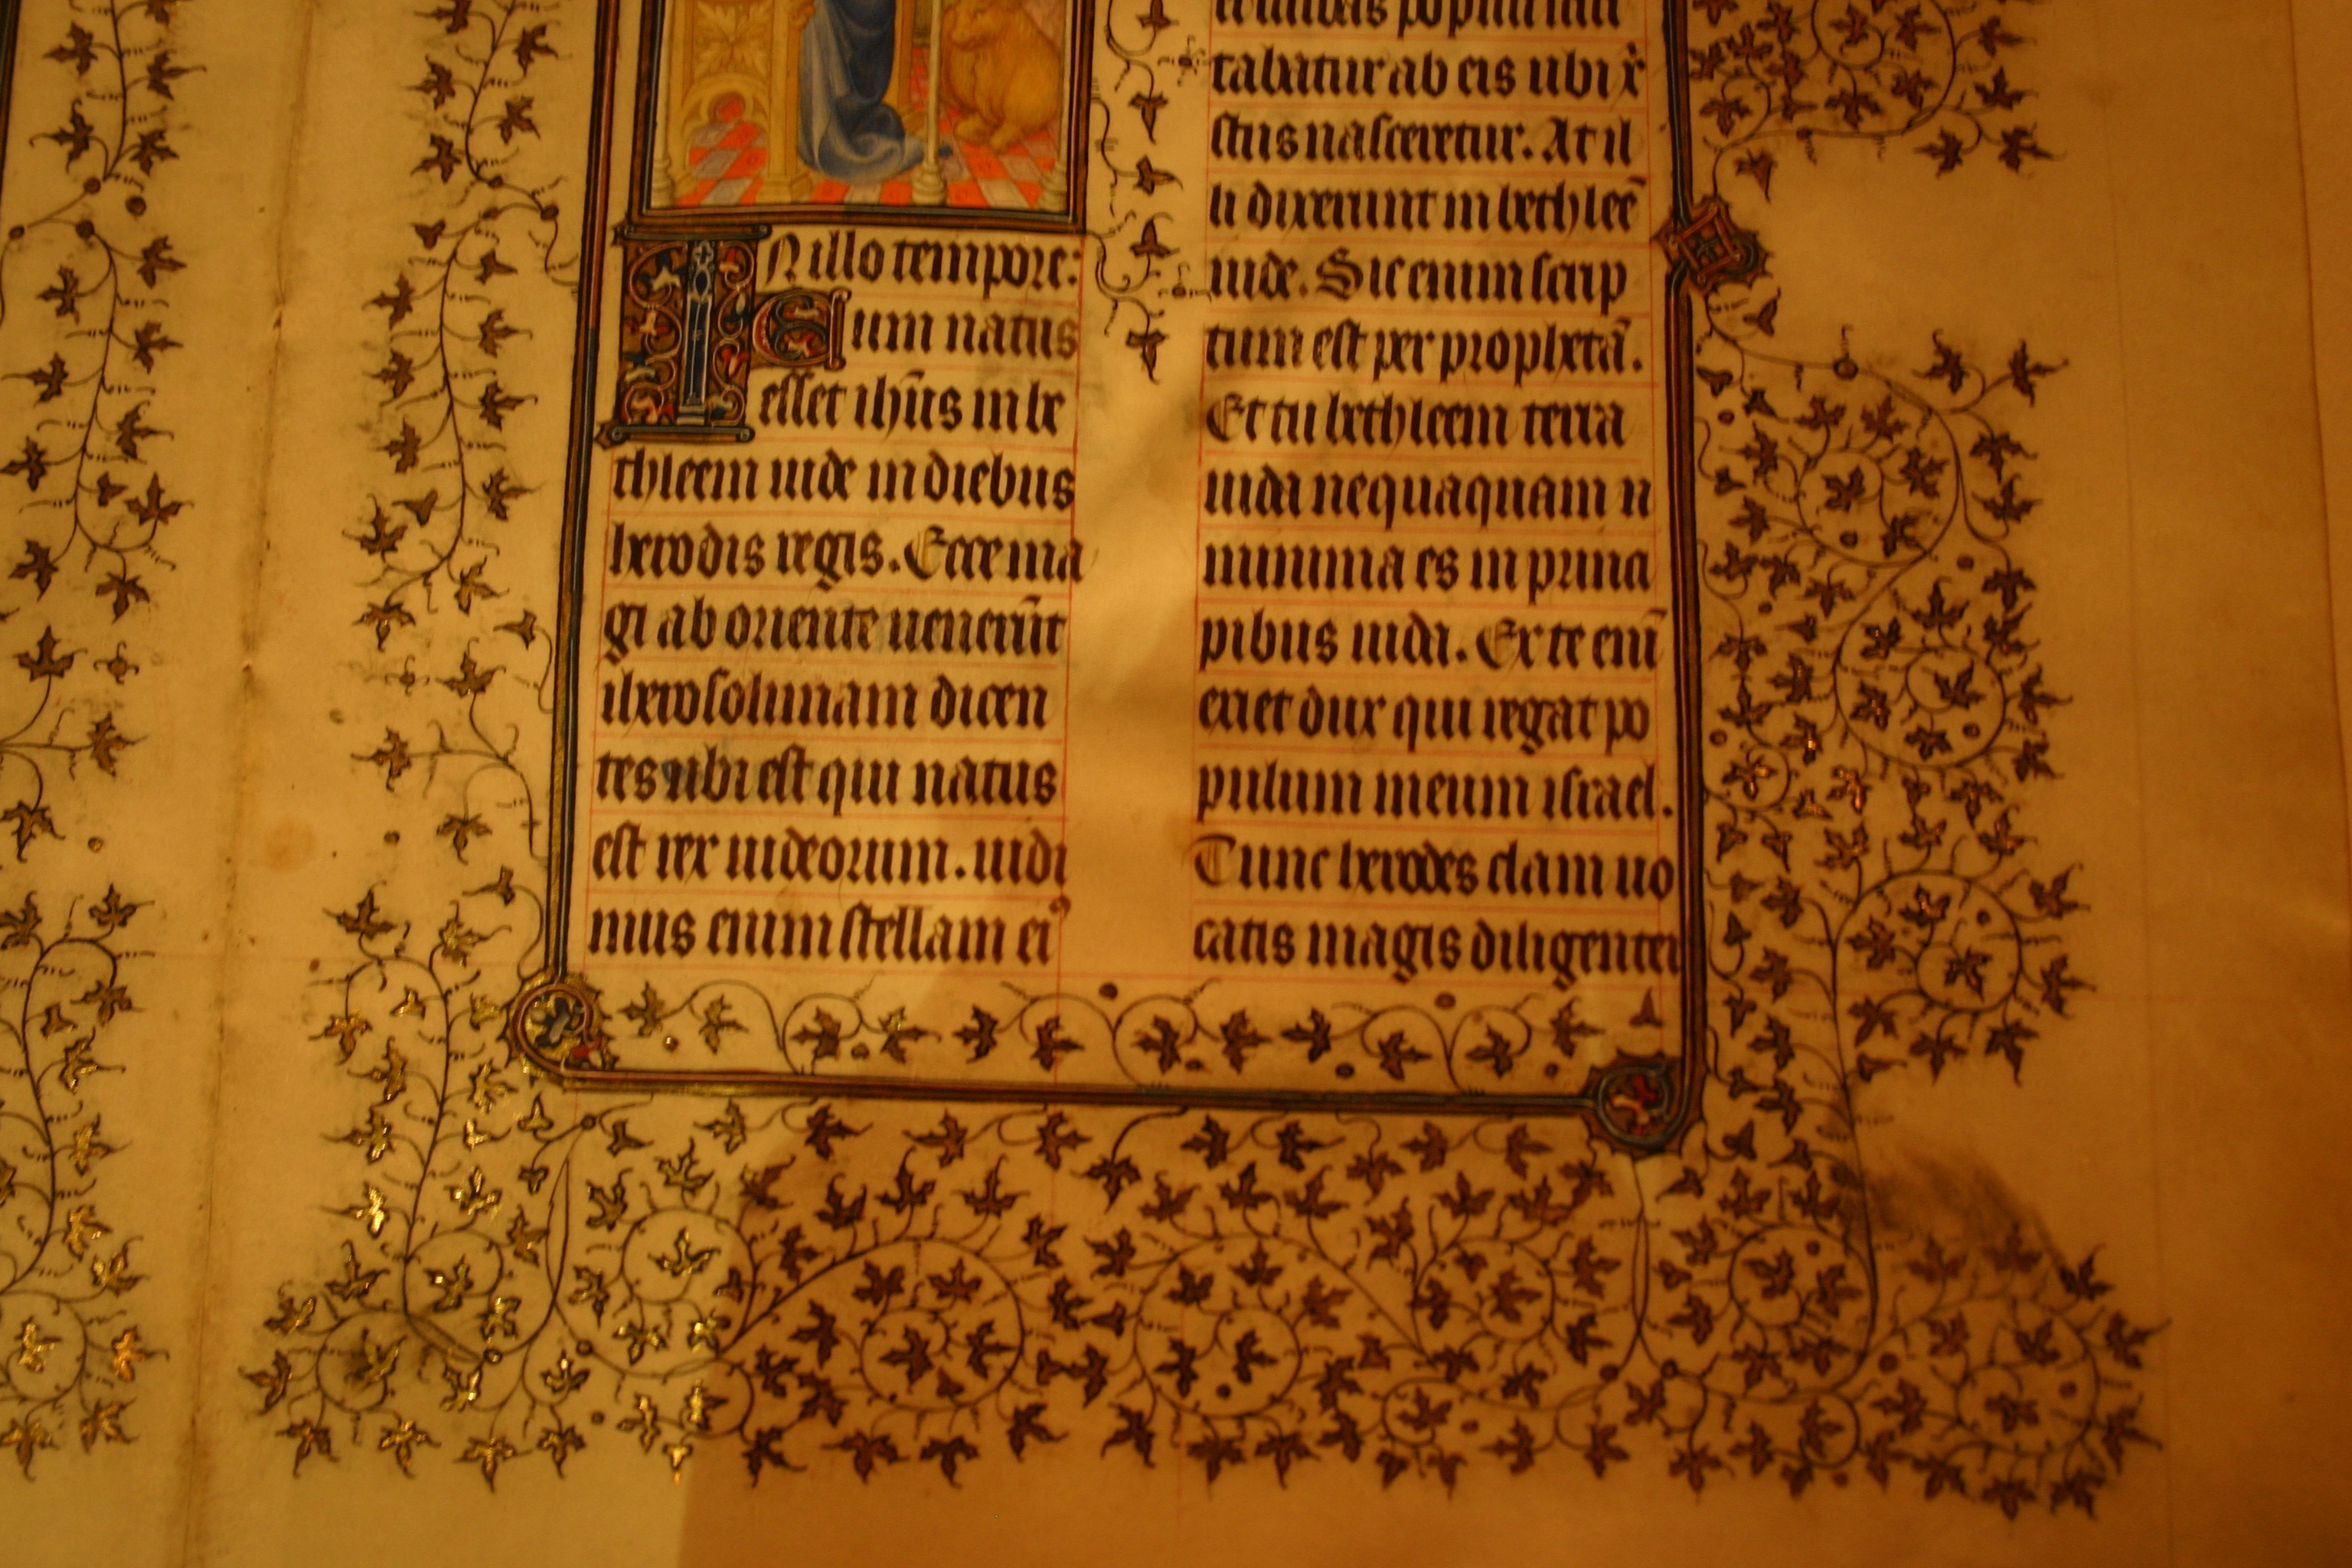 In illo tempore:
Cum natus
esset ih̅us in be
thleem iude in diebus
herodis regis. Ecce ma
gi ab oriente uenerūt
iherosolimam dicen
tes ubi est qui natus
est rex iudeorum. uidi
mus enim stellam ei᾿
populi
tabatur ab eis ubi x̅
stus nasceretur. At il
li dixerunt in bethleē
iude. Sic enim scrip
tum est per prophetā.
Et tu bethleem terra
iuda nequaquam
minima es in princi
pibus iuda. Ex te enī
exiet dux qui regat po
pulum meum israel.
Tunc herodes clam uo
catis magis diligenter